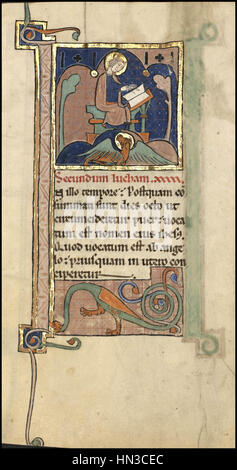 Secundum lucham. xxxx.
In illo tempore: Postquam co
summati sunt dies octo ut
circumcideretur puer: voca
tum est nomen eius ihesus
Quod vocatum est ab ange
lo: priusquam in utero con
ciperetur.
alamy
HN3CEC